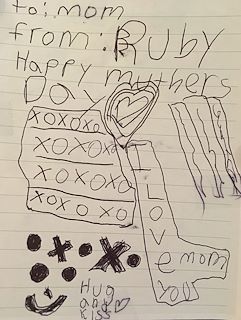 to: mom
from: Ruby
Happy muthers
Day
XOXOXO
XOXOXO
XOXOXO
XOXOXO
I
LOVE
mom
you
Hug
and
kiss